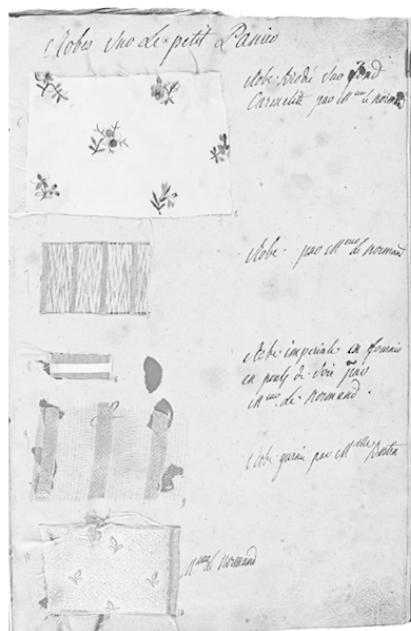 Robes Sur Le petit Panier
Robe Brodé Sur fond
Carmelite par M.me le normand
Robe par M.me le normand
Robe imperiale en
en pouls de Soie par
M.me le normand.
Robe par M.elle Bertin
M.me le normand